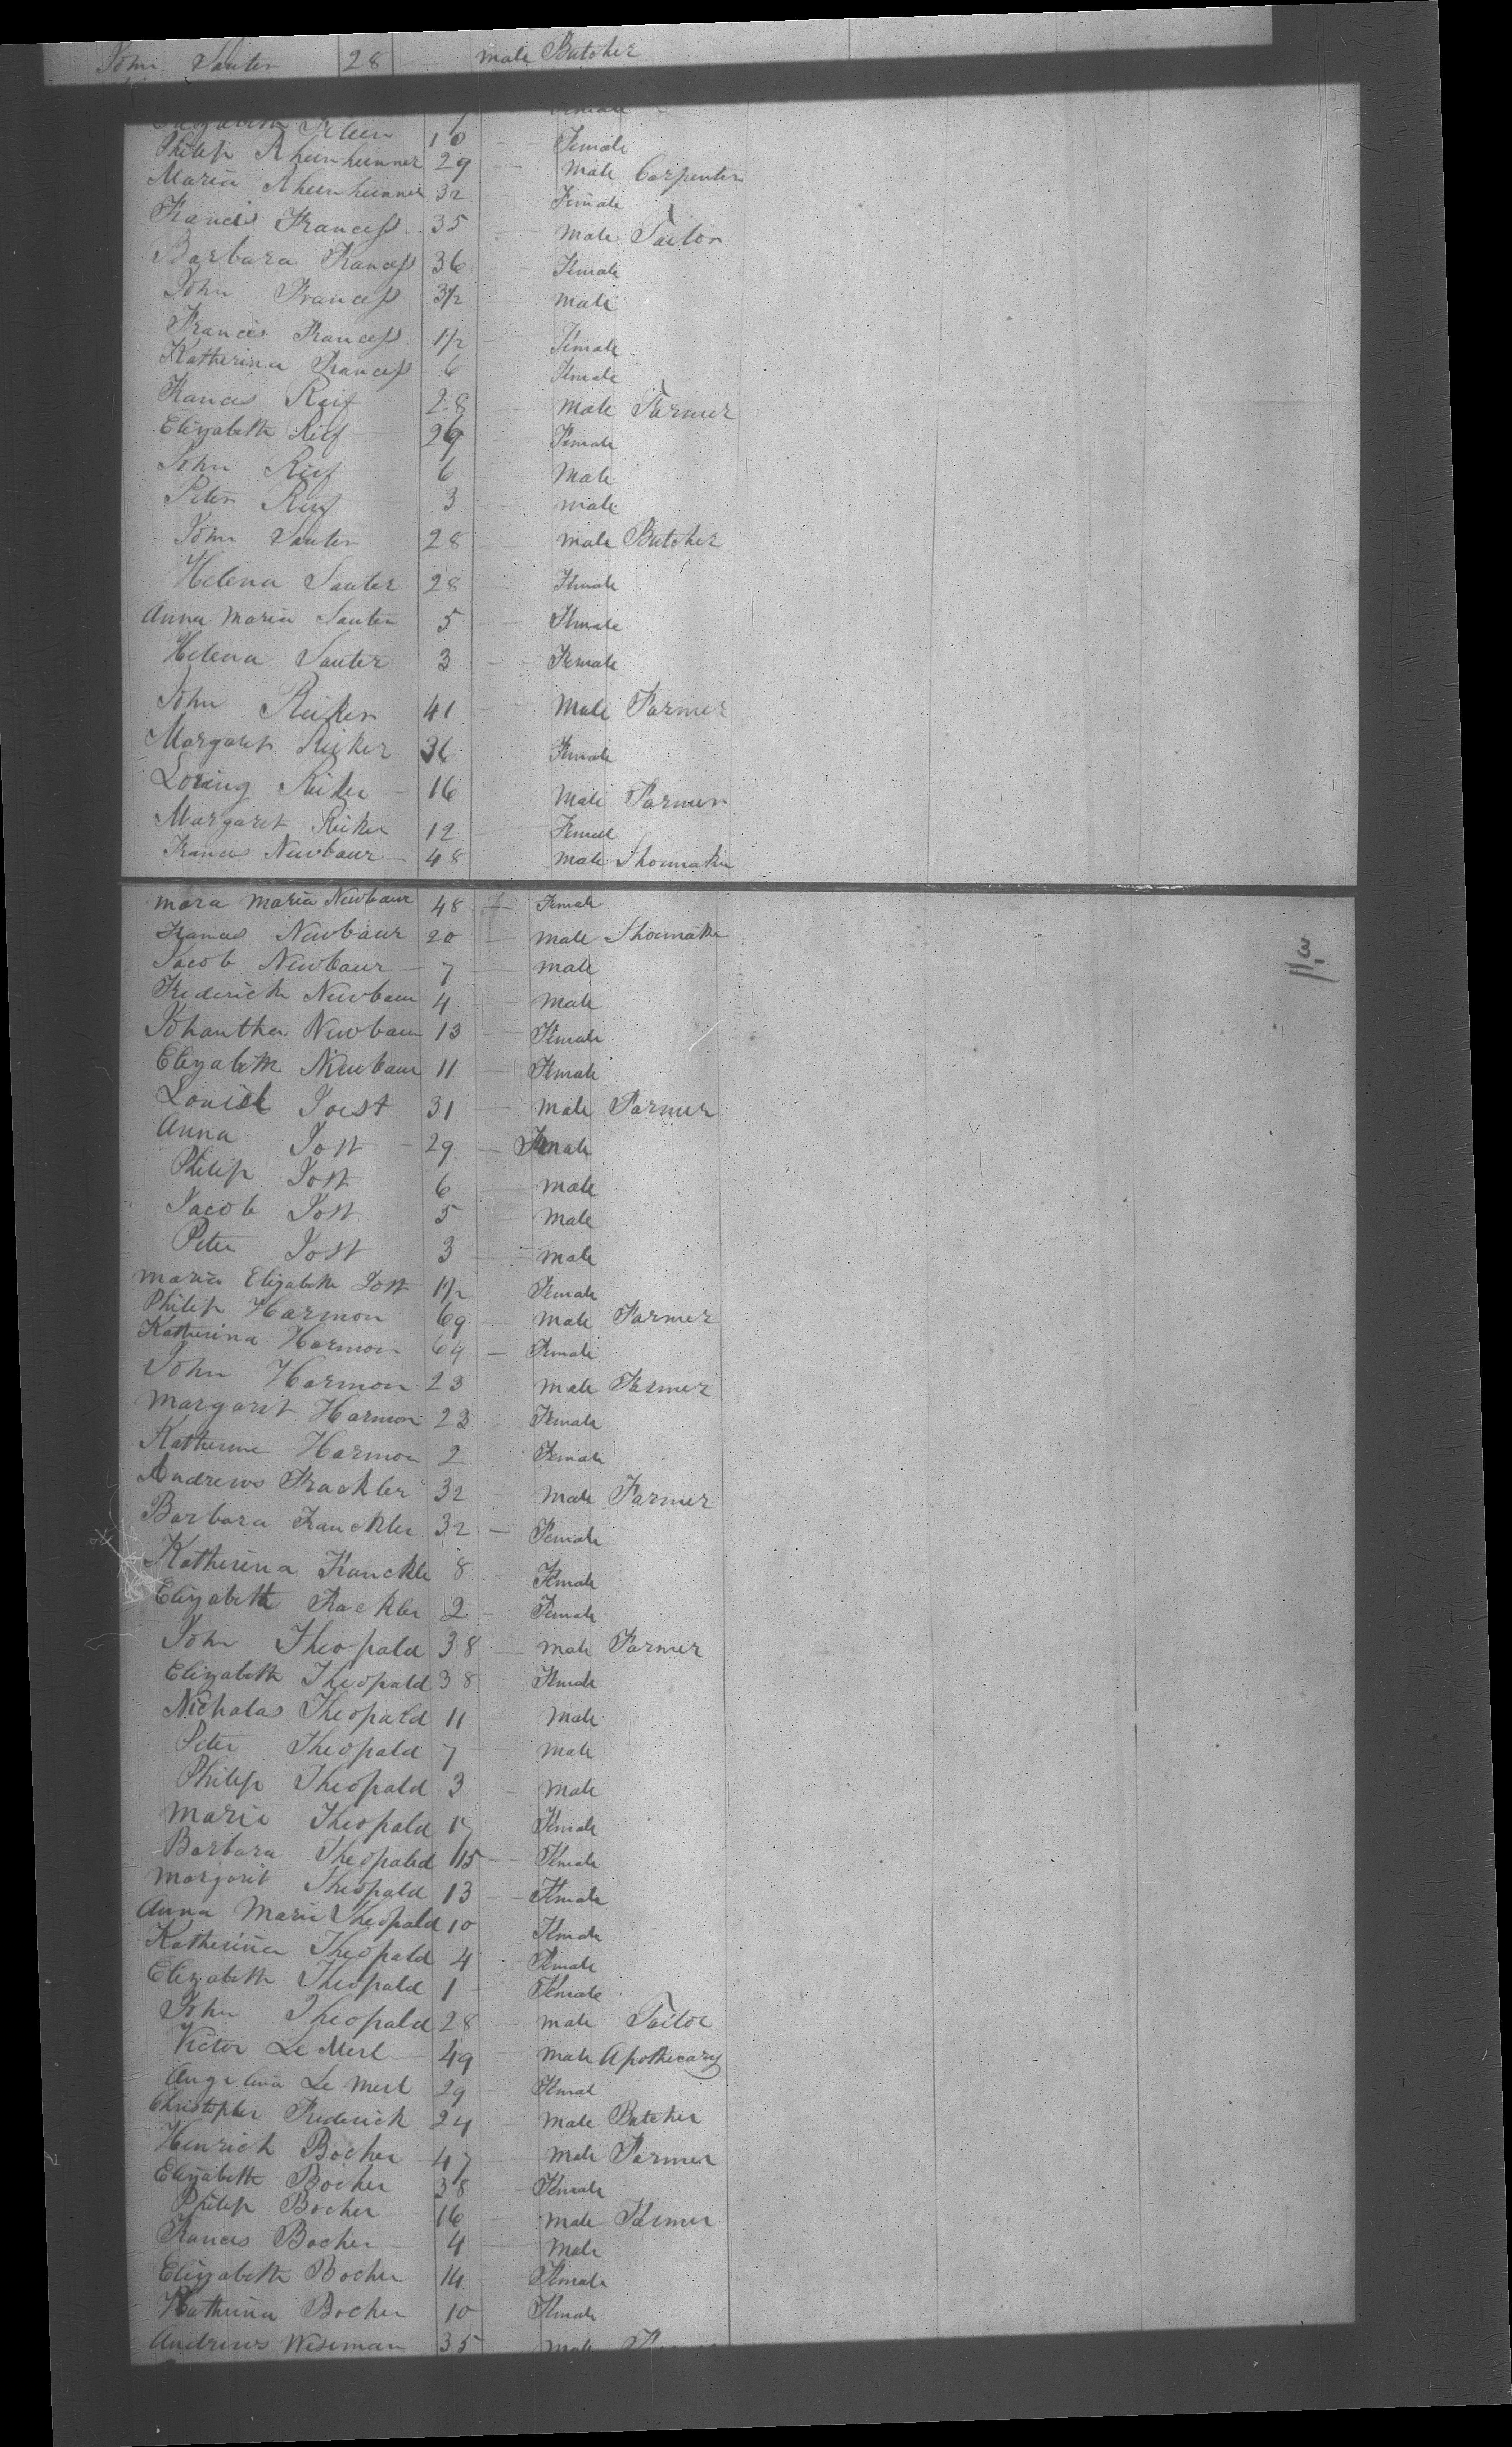 John Sauter 28 male Butcher
Elizabeth 10 Female
Philip Rheinheimmer 29 male Carpenter
Maria Rheinheimmer 32 Female
Francis Francess 35 male Tailor
Barbara Francess 36 Female
John Francess 3/2 male
Francis Francess 1/2 Female
Katherina Francess 6 Female
Francis Reif 28 male Farmer
Elizabeth Reif 29 Female
John Reif 6 Male
Peter Reif 3 male
John Sauter 28 male Butcher
Helena Sauter 28 Female
Anna Maria Sauter 5 Female
Helena Sauter 3 Female
John Reiker 41 Male Farmer
Margaret Reiker 36 Female
Loring Reiker 16 Male Farmer
Margaret Reiker 12 Female
Francis Newbaur 48 male Shoemaker
mara maria Newbaur 48 Female
Frances Newbaur 20 male Shoemaker
3
Jacob Newbaur 7 male
Frederick Newbaur 4 male
Johantha Newbaur 13 Female
Elizabeth Newbaur 11 Female
Louise Joest 31 male Farmer
Anna Jost 29 Female
Philip Jost 6 male
Jacob Jost 5 male
Peter Jost 3 male
maria Elizabeth Jost 1/2 Female
Philip Harmon 69 male Farmer
Katherina Harmon 64 Female
John Harmon 23 male Farmer
Margarit Harmon 23 Female
Katherine Harmon 2 Female
Andrews Frackler 32 male Farmer
Barbara Franckler 32 Female
Katherina Franckle 8 Female
Elizabeth Frackler 2 Female
John Theopald 38 male Farmer
Elizabeth Theopald 38 Female
Nicholas Theopald 11 male
Peter Theopald 7 male
Philip Theopald 3 male
Maria Theopald 17 Female
Barbara Theopald 15 Female
margarit Theopald 13 Female
Anna Maria Theopald 10 Female
Katherina Theopald 4 Female
Elizabeth Theopald 1 Female
John Theopald 28 male Tailor
Victor Le Merl 49 male Apothecary
Angelina Le Merl 29 Femal
Christopher Frederick 24 male Butcher
Henrich Bocher 47 male Farmer
Elizabeth Bocher 38 Female
Philip Bocher 16 male Farmer
Frances Bocher 4 male
Elizabeth Bocher 14 Female
Katherina Bocher 10 Female
Andrews Weseman 35 male